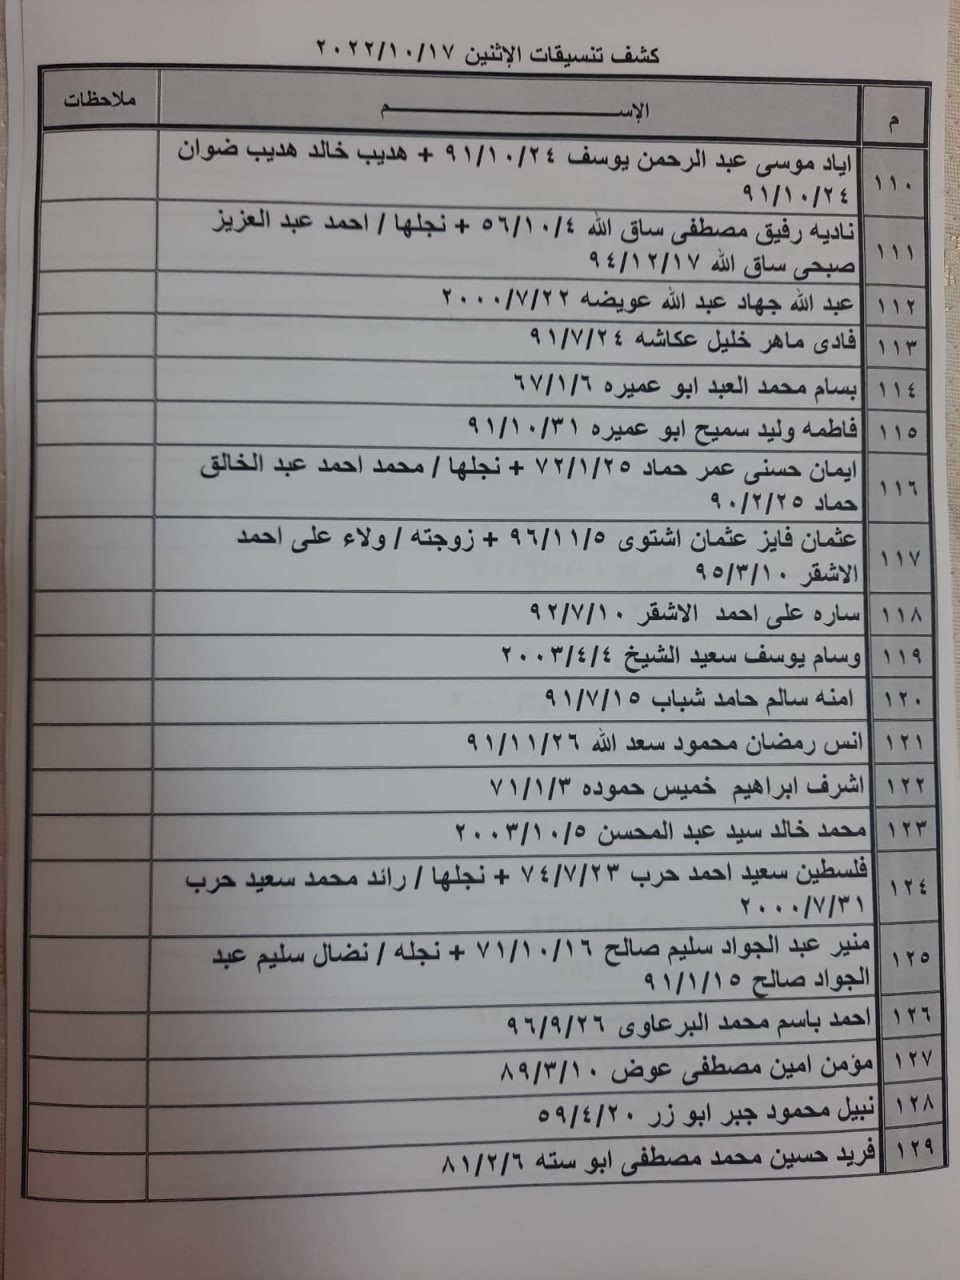 كشف تنسيقات الإثنين ٢٠٢٢/١٠/١٧
م الإســـــــــــم ملاحظات
١١٠ اياد موسى عبد الرحمن يوسف ٩١/١٠/٢٤ + هديب خالد هديب ضوان
٩١/١٠/٢٤
١١١ ناديه رفيق مصطفى ساق الله ٥٦/١٠/٤ + نجلها / احمد عبد العزيز
صبحى ساق الله ٩٤/١٢/١٧
١١٢ عبد الله جهاد عبد الله عويضه ٢٠٠٠/٧/٢٢
١١٣ فادى ماهر خليل عكاشه ٩١/٧/٢٤
١١٤ بسام محمد العبد ابو عميره ٦٧/١/٦
١١٥ فاطمه وليد سميح ابو عميره ٩١/١٠/٣١
١١٦ ايمان حسنى عمر حماد ٧٢/١/٢٥ + نجلها / محمد احمد عبد الخالق
حماد ٩٠/٢/٢٥
١١٧ عثمان فايز عثمان اشتوى ٩٦/١١/٥ + زوجته / ولاء على احمد
الاشقر ٩٥/٣/١٠
١١٨ ساره على احمد الاشقر ٩٢/٧/١٠
١١٩ وسام يوسف سعيد الشيخ ٢٠٠٣/٤/٤
١٢٠ امنه سالم حامد شباب ٩١/٧/١٥
١٢١ انس رمضان محمود سعد الله ٩١/١١/٢٦
١٢٢ اشرف ابراهيم خميس حموده ٧١/١/٣
١٢٣ محمد خالد سيد عبد المحسن ٢٠٠٣/١٠/٥
١٢٤ فلسطين سعيد احمد حرب ٧٤/٧/٢٣ + نجلها / رائد محمد سعيد حرب
٢٠٠٠/٧/٣١
١٢٥ منير عبد الجواد سليم صالح ٧١/١٠/١٦ + نجله / نضال سليم عبد
الجواد صالح ٩١/١/١٥
١٢٦ احمد باسم محمد البرعاوى ٩٦/٩/٢٦
١٢٧ مؤمن امين مصطفى عوض ٨٩/٣/١٠
١٢٨ نبيل محمود جبر ابو زر ٥٩/٤/٢٠
١٢٩ فريد حسين محمد مصطفى ابو سته ٨١/٢/٦